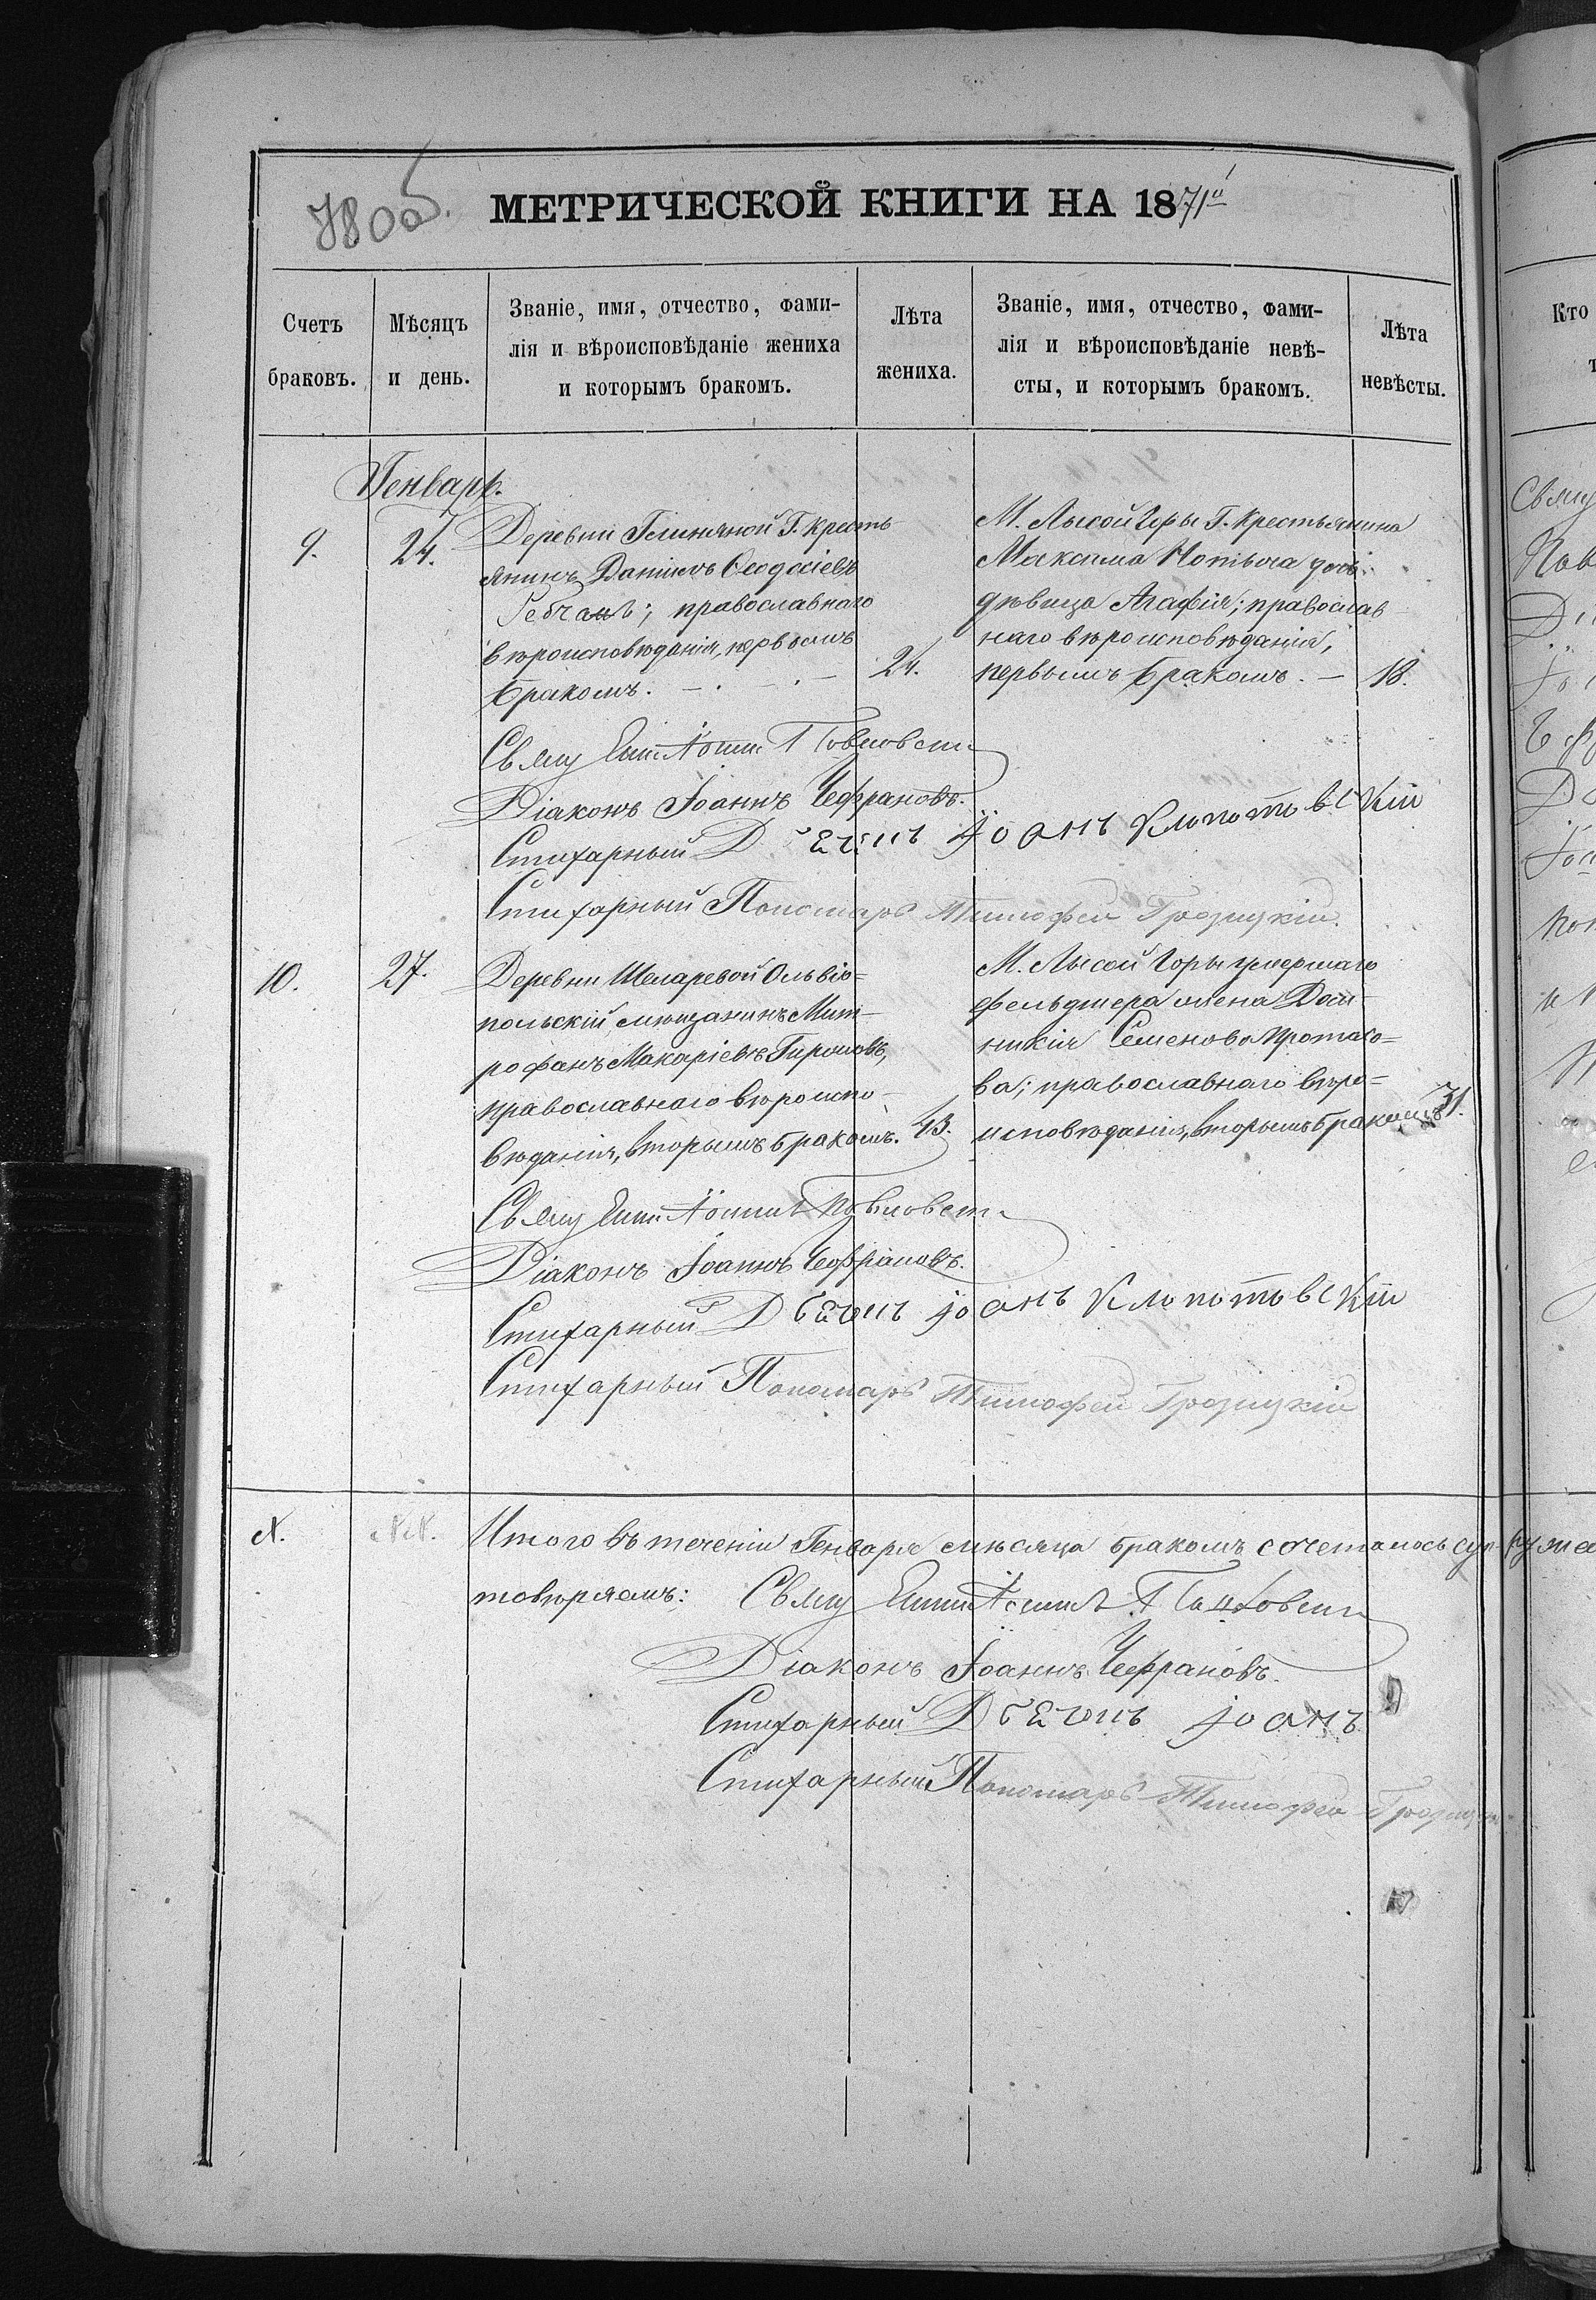 780об.
МЕТРИЧЕСКОЙ КНИГИ НА 1871й
Счетъ браковъ.
Мѣсяцъ и день.
Званіе, имя, отчество, фами-
лія и вѣроисповѣданіе жениха
и которымъ бракомъ.
Лѣта жениха.
Званіе, имя, отчество, фами-
лія и вѣроисповѣданіе невѣ-
сты, и которымъ бракомъ.
Лѣта невѣсты.
Генварь.
9.
24.
Деревни Глиняной Г. кресть
янинъ Даніилъ Ѳеодосіевъ
православнаго
вѣроисповѣданія, первымъ
бракомъ.
24.
М. Лысой Горы Г. крестьянина
Максима дочь
дѣвица Агафія; православ
наго вѣроисповѣданія,
первымъ бракомъ.
18.
Діаконъ Іоаннъ Чефрановъ.
Стихарный Дьячекъ Іоанъ Клопотовскій
Стихарный Пономарь Тимофей Грозицкій.
10.
27.
Деревни Шеларевой Ольвіо=
польскій мѣщанинъ Мит-
рофанъ Макаріевъ
православнаго вѣроиспо-
вѣданія, вторымъ бракомъ.
43.
М. Лысой Горы умершаго
фельдшера жена Дом-
никія Семенова Протасо=
ва; православнаго вѣро=
исповѣданія, вторымъ бракомъ
31.
Діаконъ Іоаннъ Чефрановъ.
Стихарный Дьячекъ Іоанъ Клопотовскій
Стихарный Пономарь Тимофей Грозицкій
Итого въ теченіи Генваря мѣсяца бракомъ сочеталось суп
товѣряемъ:
Діаконъ Іоаннъ Чефрановъ.
Стихарный Дьячекъ Іоанъ
Стихарный Пономарь Тимофей Грозицкій